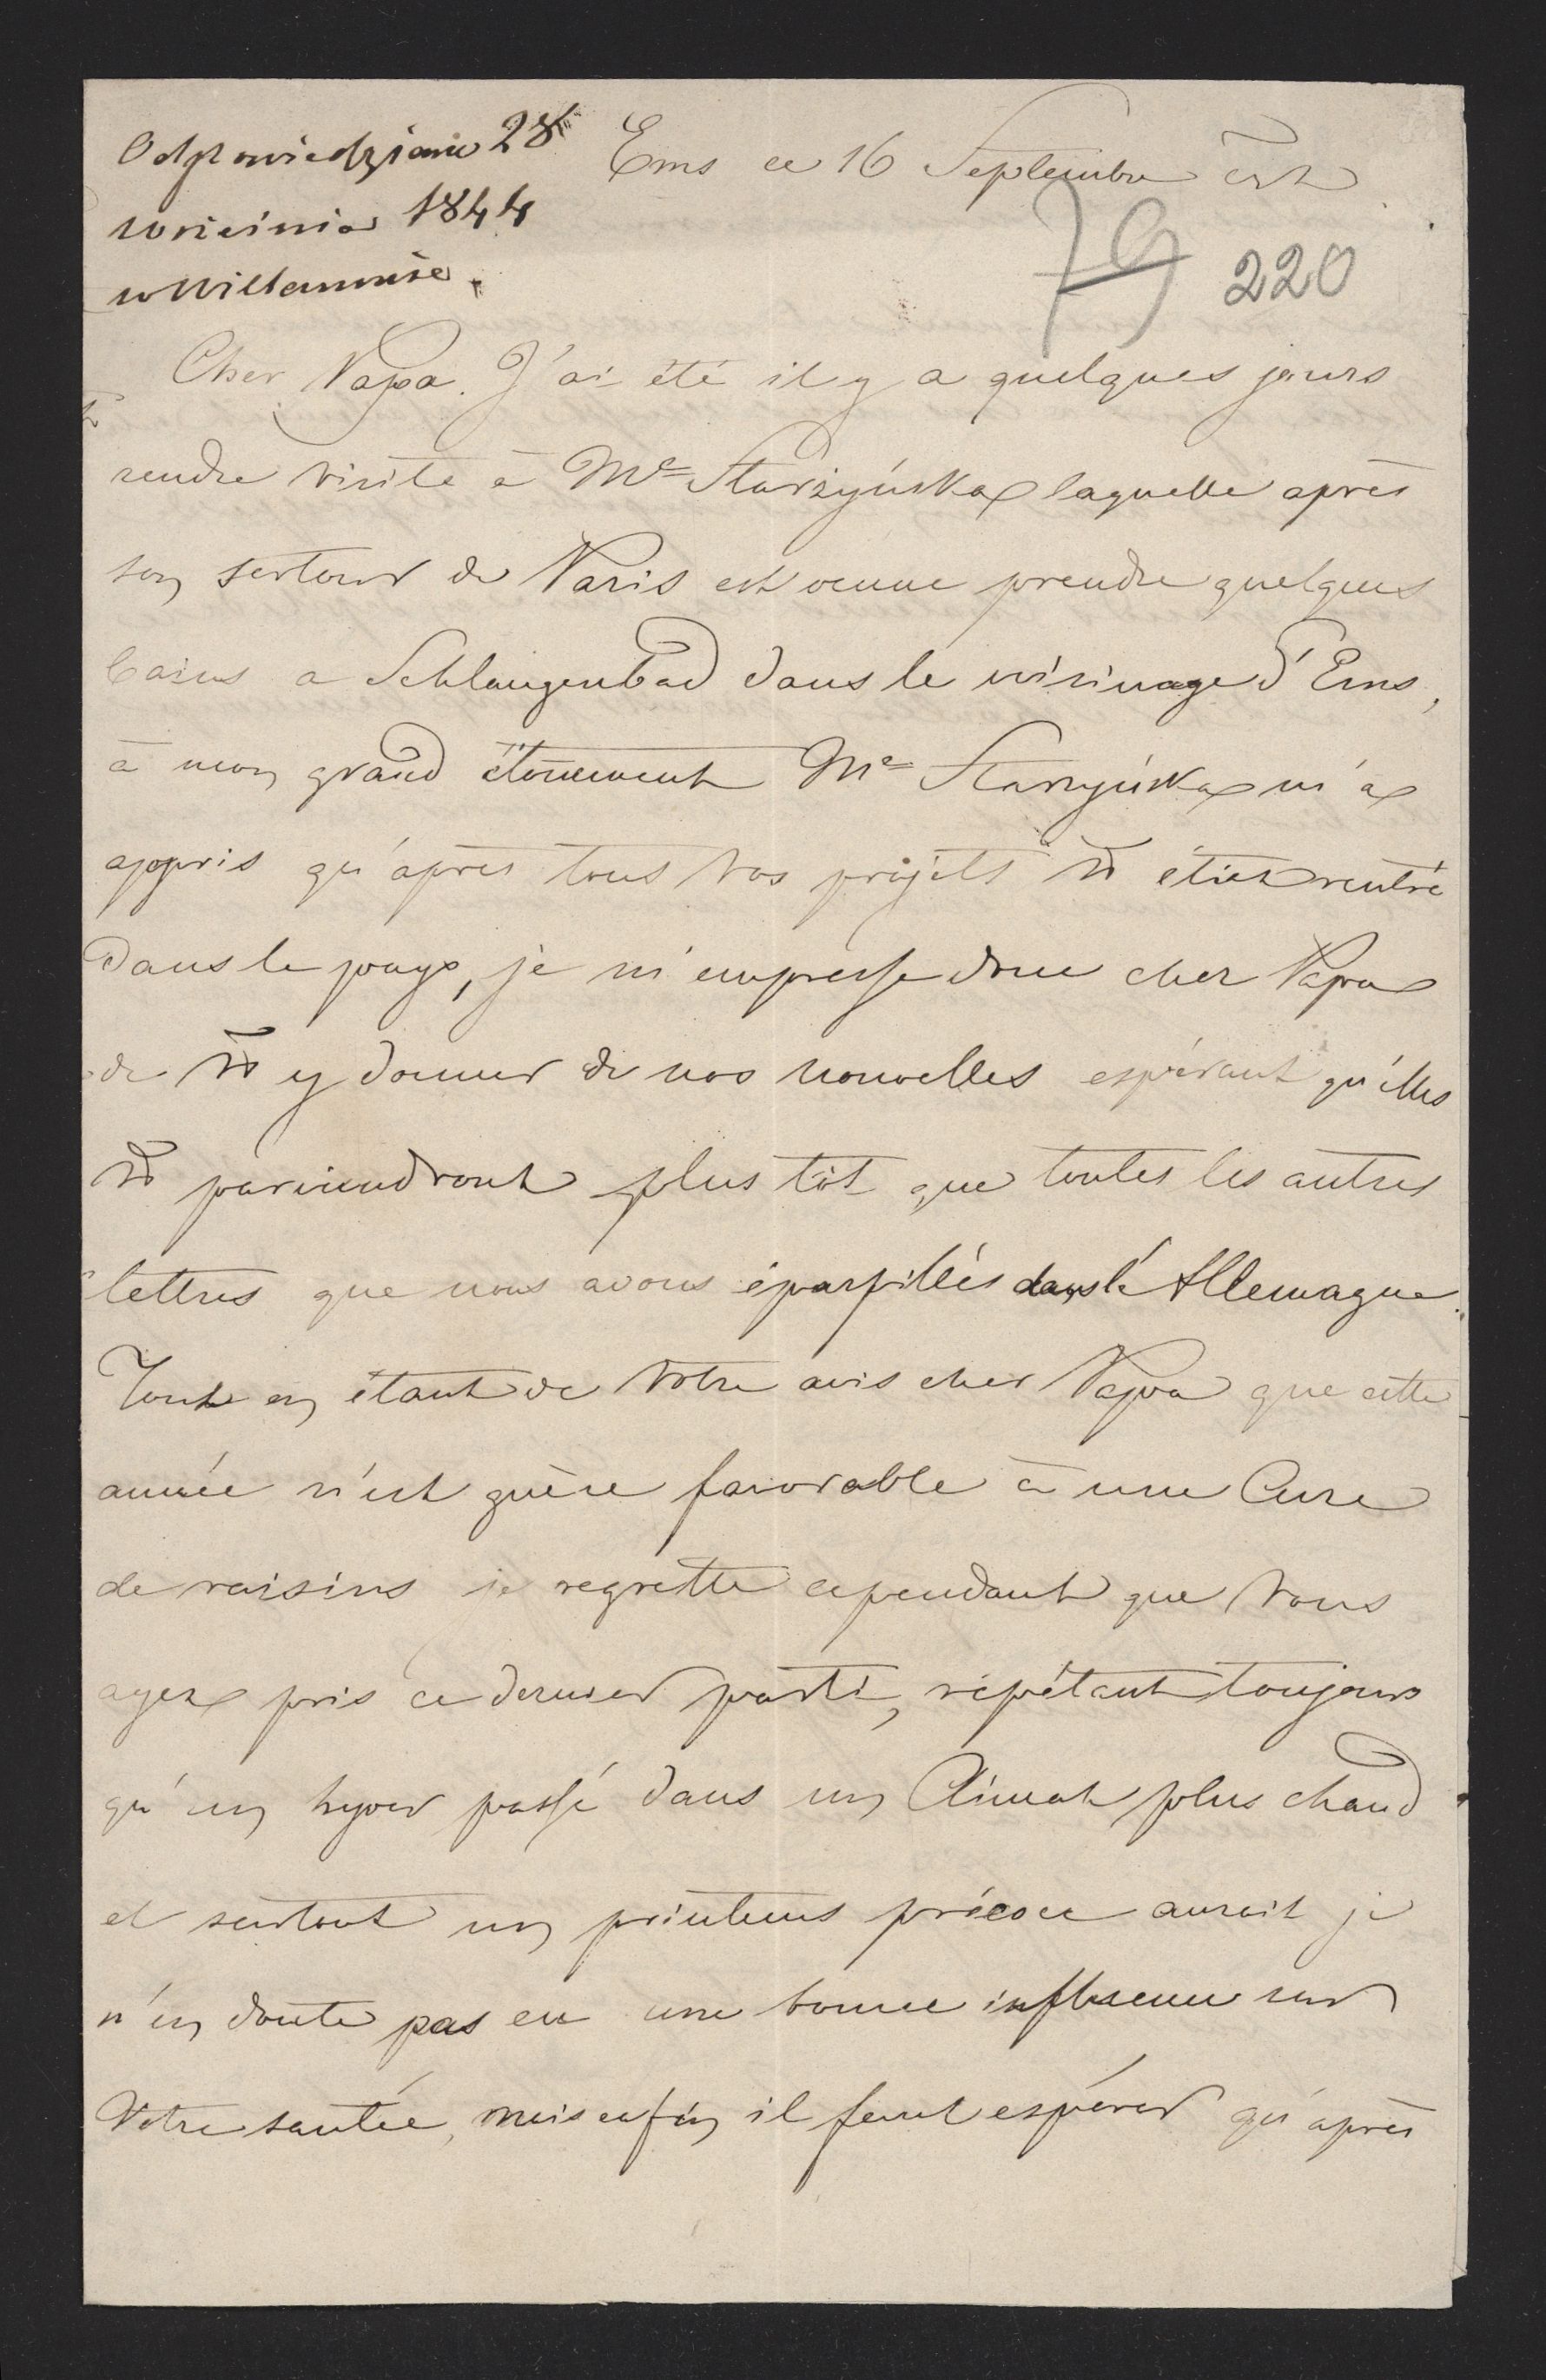 Odpowiedziano 28
września 1844
w Willanowie.
Ems ce 16 Septembre
79 220
Cher Papa. J'ai été il y a quelques jours
rendre visite à Me Starzyńska laquelle après
son retour de Paris est venue prendre quelques
bains a Schlangenbad dans le voisinage d'Ems,
à mon grand étonement Me Starzyńska m'a
appris qu'après tous vos projets v̄s étiez rentré
dans le pays, je m'empresse donc cher Papa
de v̄s y donner de nos nouvelles espérant qu'elles
v̄s parviendront plus tôt que toutes les autres
lettres que nous avons éparpillés dans l'Allemagne.
Tout en étant de Votre avis cher Papa que cette
année n'est guère favorable à une Cure
de raisins je regrette cependant que Vous
ayez pris ce dernier parti, répétant toujours
qu'un hyver passé dans un Climat plus chaud
et surtout un printems précoce aurait je
n'en doute pas eu une bonne influence sur
Votre santée, mais enfin il faut espérer qu'après